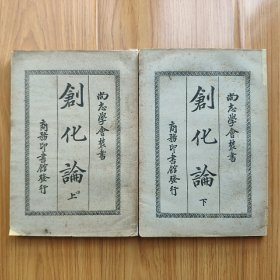 尚志學會叢書
創化論
上
商務印書館發行
尚志學會叢書
創化論
下
商務印書館發行